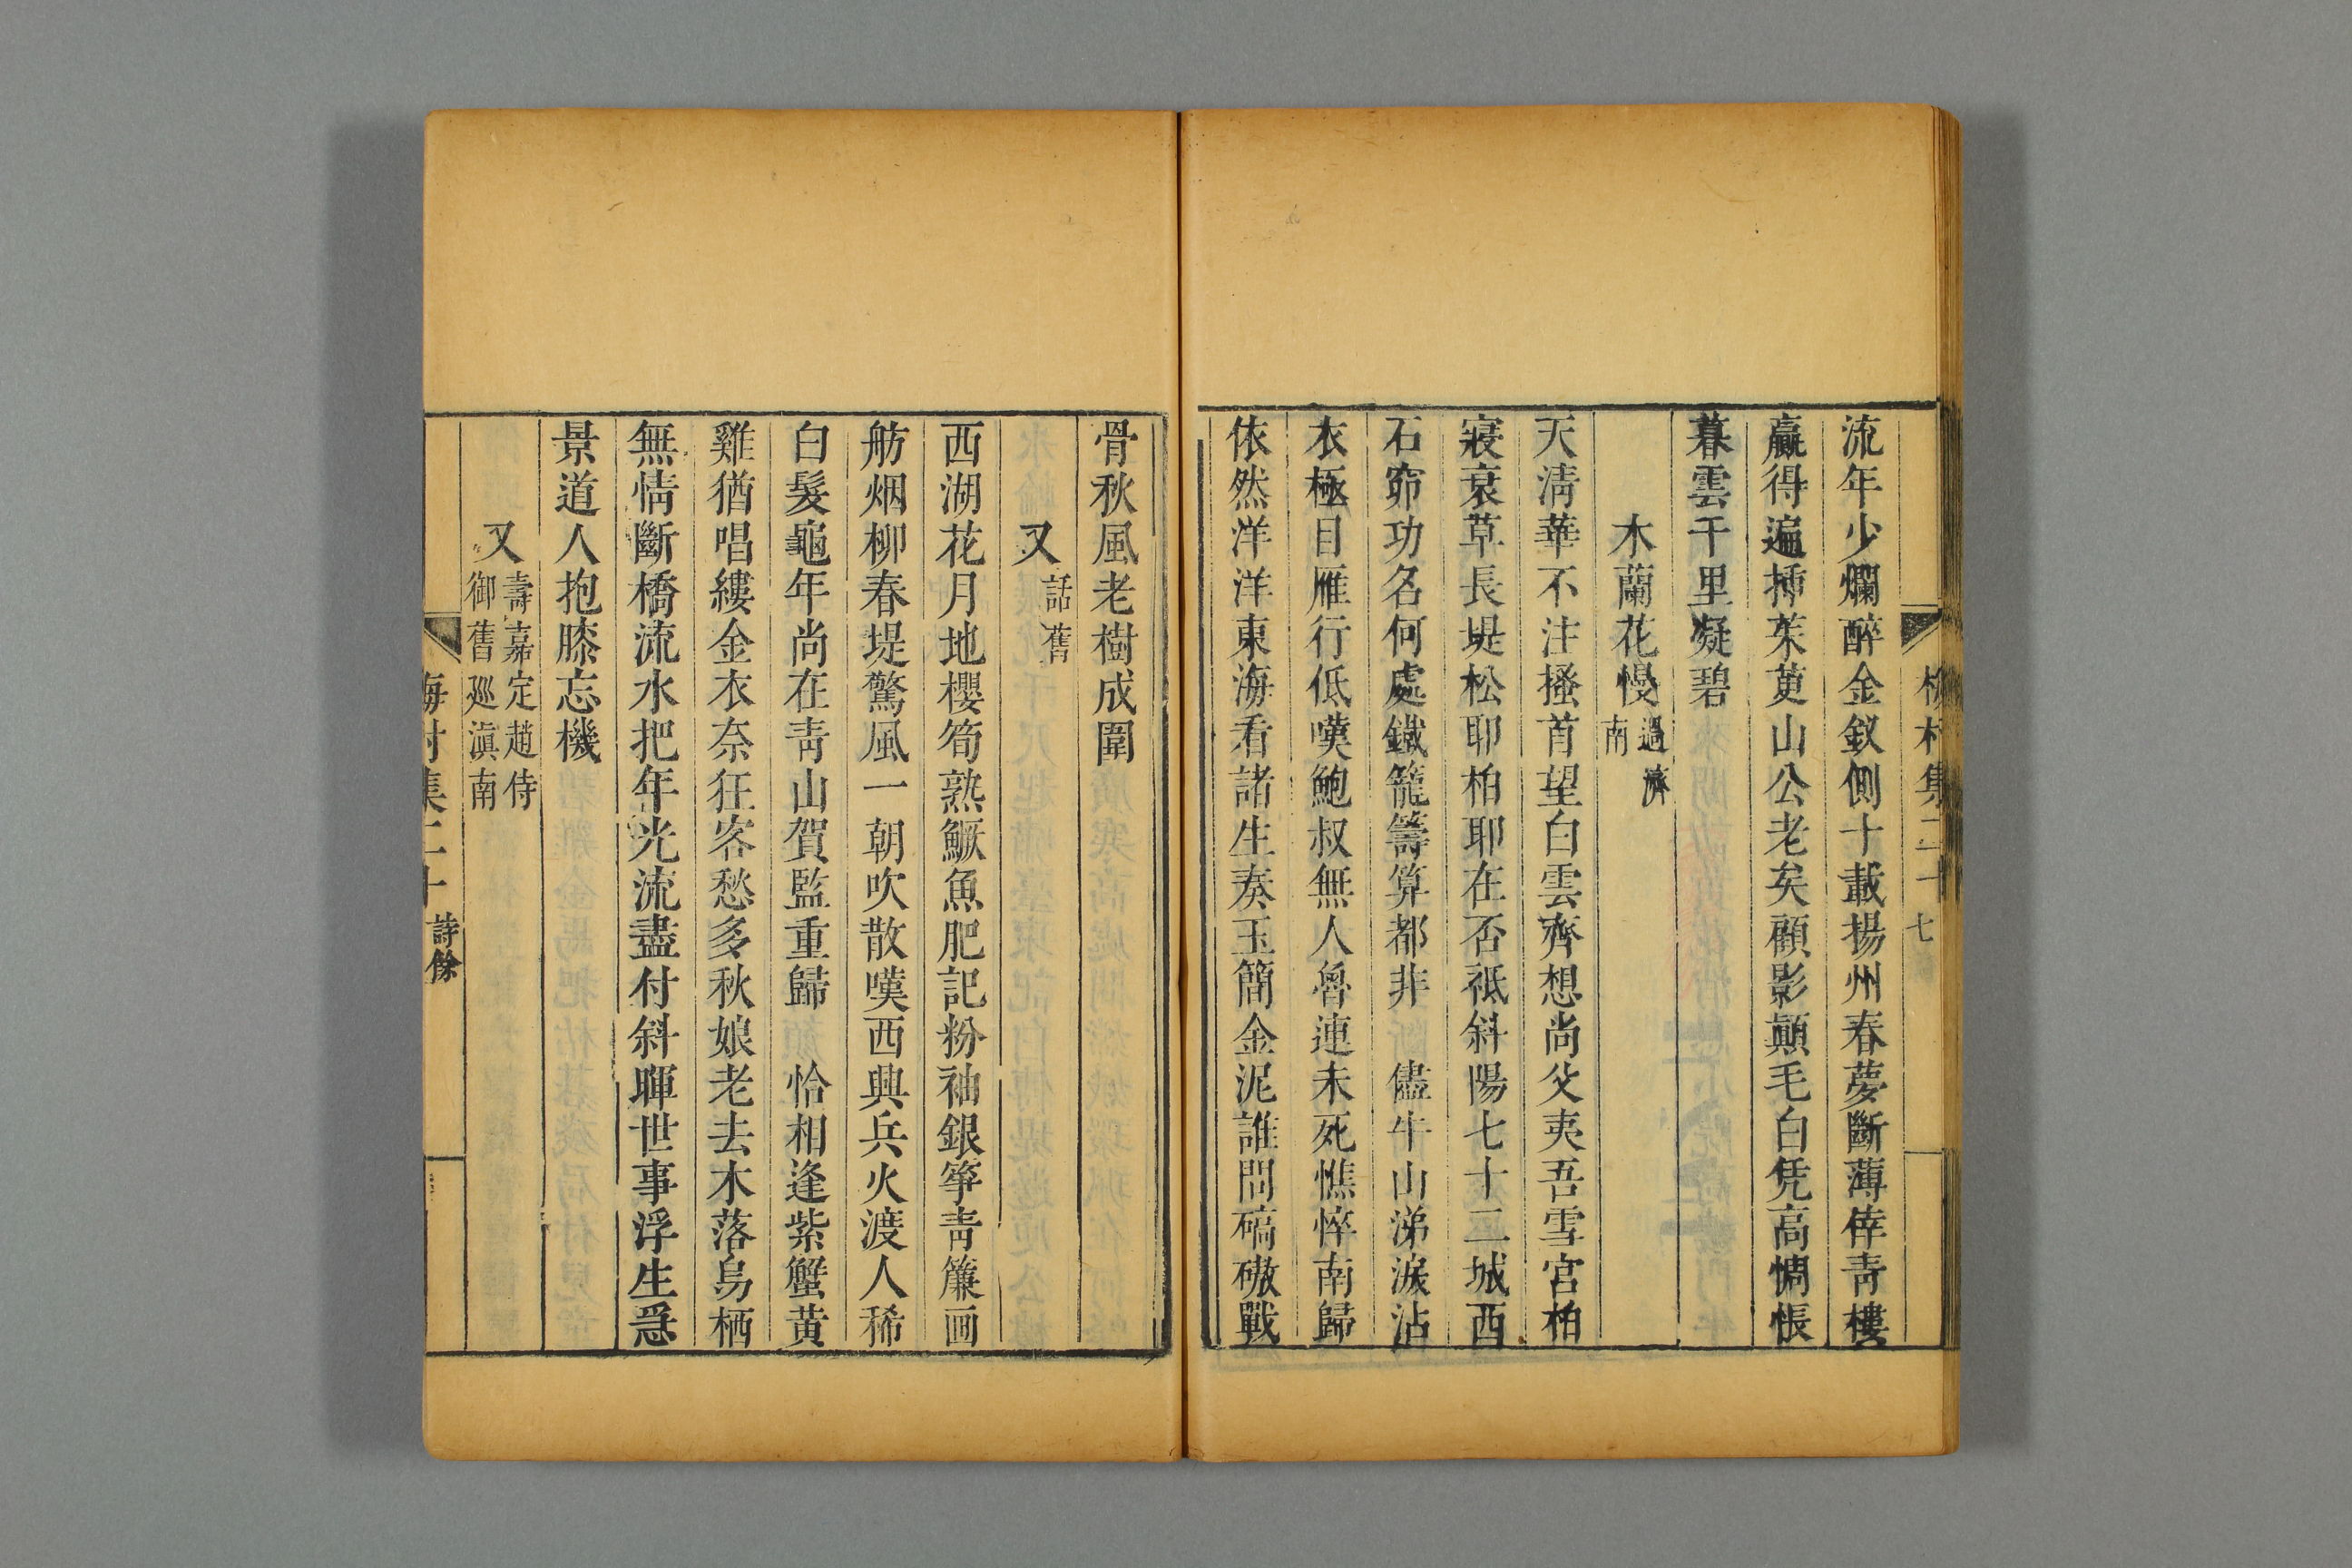 梅村集二十 七
流年少爛醉金釵側十載揚州春夢斷薄倖青樓
贏得遍揷茱萸山公老矣顧影顚毛白凭高惆悵
暮雲千里凝碧
木蘭花慢過濟南
天淸華不注搔首望白雲齊想尚父夷吾雪宮柏
寢衰草長堤松耶柏耶在否祗斜陽七十二城西
石窌功名何處鐵籠籌算都非 儘牛山涕淚沾
衣極目雁行低嘆鮑叔無人魯連未死憔悴南歸
依然洋洋東海看諸生奏玉簡金泥誰問碻磝戰
骨秋風老樹成圍
又話舊
西湖花月地櫻筍熟鱖魚肥記粉袖銀箏靑簾画
舫烟柳春堤驚風一朝吹散嘆西興兵火渡人稀
白髮龜年尚在靑山賀監重歸 恰相逢紫蟹黃
雞猶唱縷金衣奈狂客愁多秋娘老去木落烏栖
無情斷橋流水把年光流盡付斜暉世事浮生急
景道人抱膝忘機
又壽嘉定趙侍御舊廵滇南
梅村集二十 詩餘